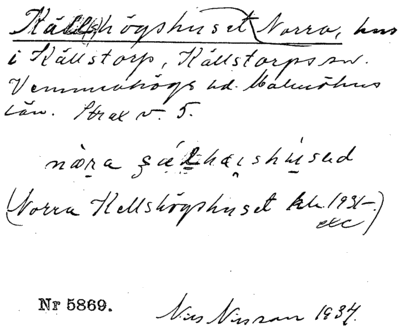 Källshögshuset Norra, hus
i Källstorp, Källstorps sn.
Vemmenhögs hd. Malmöhus
län. Strax v. 5.
(Norra Kellshögshuset kb. 1931-
etc)
Nr 5869.
Nils Nilsson 1934.